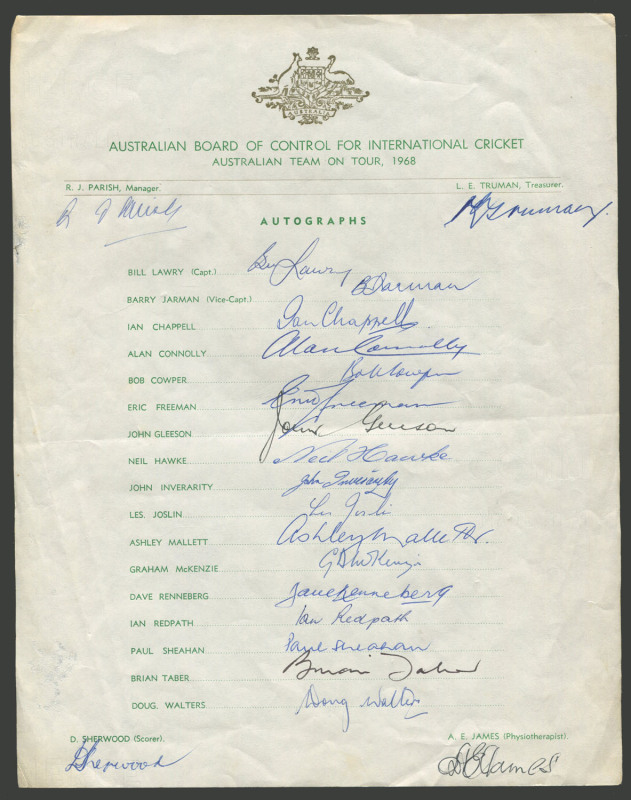 AUSTRALIA
AUSTRALIAN BOARD OF CONTROL FOR INTERNATIONAL CRICKET
AUSTRALIAN TEAM ON TOUR, 1968
R. J. PARISH, Manager. L. E. TRUMAN, Treasurer.
R J Parish L E Truman
AUTOGRAPHS
BILL LAWRY (Capt.) Bill Lawry
BARRY JARMAN (Vice-Capt.) B Jarman
IAN CHAPPELL Ian Chappell
ALAN CONNOLLY Alan Connolly
BOB COWPER Bob Cowper
ERIC FREEMAN Eric Freeman
JOHN GLEESON John Gleeson
NEIL HAWKE Neil Hawke
JOHN INVERARITY John Inverarity
LES. JOSLIN Les Joslin
ASHLEY MALLETT Ashley Mallett
GRAHAM McKENZIE G D McKenzie
DAVE RENNEBERG Dave Renneberg
IAN REDPATH Ian Redpath
PAUL SHEAHAN Paul Sheahan
BRIAN TABER Brian Taber
DOUG. WALTERS Doug Walters
D. SHERWOOD (Scorer). A. E. JAMES (Physiotherapist).
D Sherwood A E James